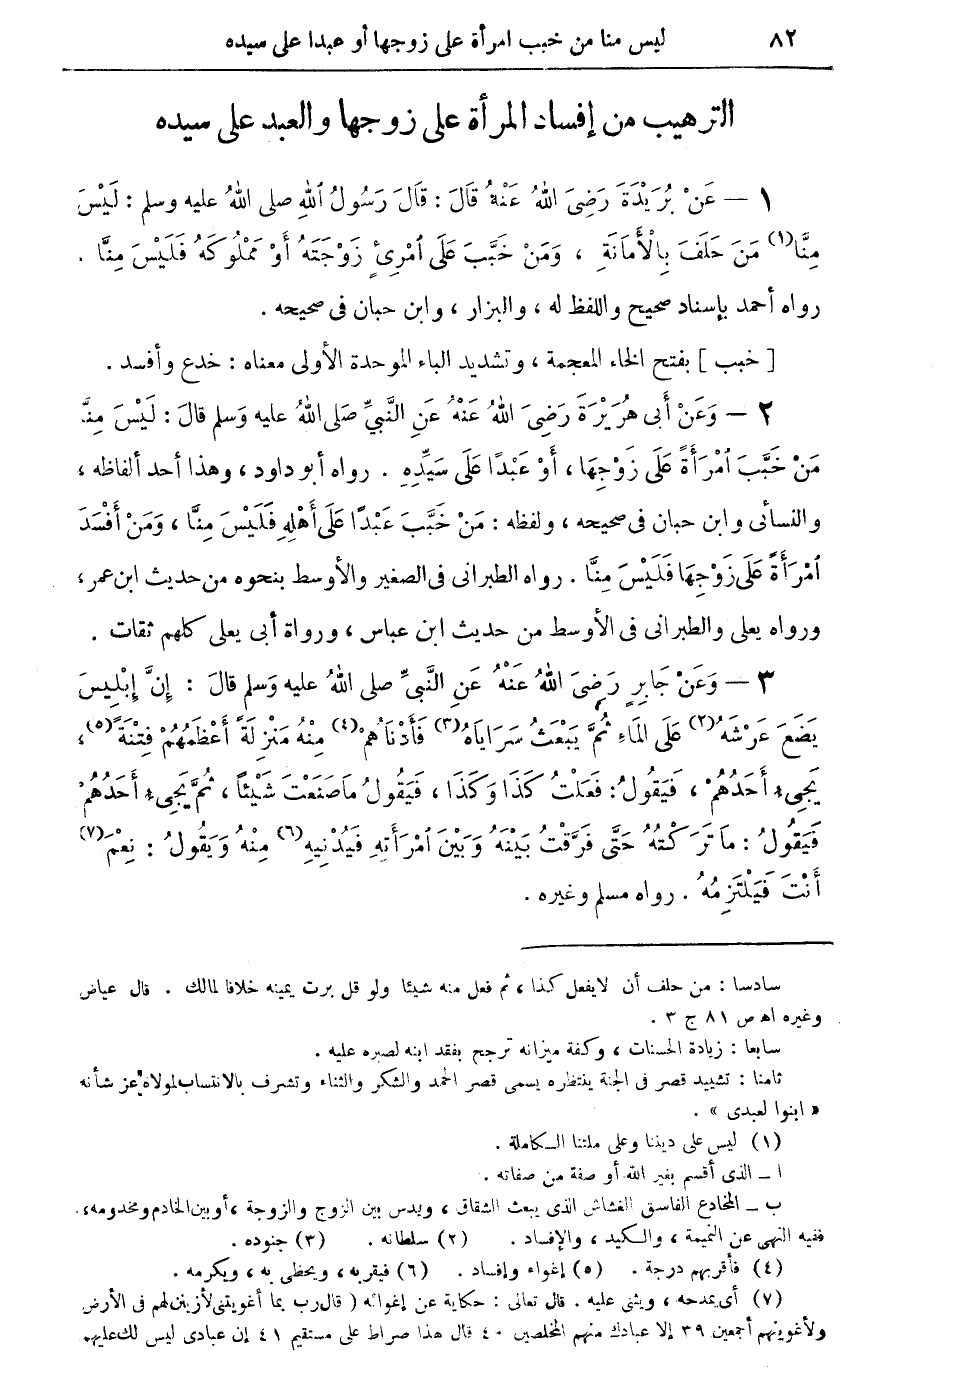 ٨٢ ليس منا من خبب امرأة على زوجها أو عبدا على سيده
الترهيب من إفساد المرأة على زوجها والعبد على سيده
١ — عَنْ بُرَيْدَةَ رَضِىَ اللهُ عَنْهُ قَالَ : قَالَ رَسُولُ اللهِ صلى اللهُ عليه وسلم : لَيْسَ
مِنَّا (١) مَنَ حَلَفَ بِالْأَمَانَةِ ، وَمَنْ خَبَّبَ عَلَى اُمْرِئٍ زَوْجَتَهُ أَوْ مَمْلُوكَهُ فَلَيْسَ مِنَّا .
رواه أحمد بإسناد صحيح واللفظ له ، والبزار ، وابن حبان فى صحيحه .
[ خبب ] بفتح الخاء المعجمة ، وتشديد الباء الموحدة الأولى معناه : خدع وأفسد .
٢ — وَعَنْ أَبى هُرَيْرَةَ رَضِىَ اللهُ عَنْهُ عَنِ النَّبِيِّ صَلى اللهُ عليه وَسلم قالَ : لَيْسَ مِنَّا
مَنْ خَبَّبَ اُمْرَأَةً عَلَى زَوْجِهَا ، أَوْ عَبْدًا عَلَى سَيِّدِهِ . رواه أبو داود ، وهذا أحد ألفاظه ،
والنسائى وابن حبان فى صحيحه ، ولفظه : مَنْ خَبَّبَ عَبْدًا عَلَى أَهْلِهِ فَلَيْسَ مِنَّا ، وَمَنْ أَفْسَدَ
اُمْرَأَةً عَلَى زَوْجِهَا فَلَيْسَ مِنَّا . رواه الطبرانى فى الصغير والأوسط بنحوه من حديث ابن عمر ،
ورواه يعلى والطبرانى فى الأوسط من حديث ابن عباس ، ورواة أبى يعلى كلهم ثقات .
٣ — وَعَنْ جَابِرٍ رَضِىَ اللهُ عَنْهُ عَنِ النَّبىِّ صلى اللهُ عليه وَسلم قالَ : إِنَّ إِبْلِيسَ
يَضَعَ عَرْشَهُ (٢) عَلَى المَاءِ ثُمَّ يَبْعَثُ سَرَايَاهُ (٣) فَأَدْنَاهُمْ (٤) مِنْهُ مَنْزِلَةً أَعْظَمُهُمْ فِتْنَةً (٥) ،
يَجِىءُ أَحَدُهُمْ ، فَيَقُولُ : فَعَلْتُ كَذَا وَكَذَا ، فَيَقُولُ مَا صَنَعْتَ شَيْئًا ، ثُمَّ يَجِىءُ أَحَدُهُمْ
فَيَقُولُ : مَا تَرَكْتُهُ حَتَّى فَرَّقْتُ بَيْنَهُ وَبَيْنَ اُمْرَأَتِهِ فَيُدْنِيهِ (٦) مِنْهُ وَيَقُولُ : نِعْمَ (٧)
أَنْتَ فَيَلْتَزِمُهُ . رواه مسلم وغيره .
سادسا : من حلف أن لا يفعل كذا ، ثم فعل منه شيئا ولو قل برت يمينه خلافا لمالك . قال عياض
وغيره اه ص ٨١ ج ٣ .
سابعا : زيادة الحسنات ، وكفة ميزانه ترجح بفقد ابنه لصبره عليه .
ثامنا : تشييد قصر فى الجنة ينتظره يسمى قصر الحمد والشكر والثناء وتشرف بالانتساب لمولاه عز شأنه
« ابنوا لعبدى » .
(١) ليس على ديننا وعلى ملتنا الكاملة .
ا — الذى أقسم بغير الله أو صفة من صفاته .
ب — المخادع الفاسق الغشاش الذى يبعث الشقاق ، ويدس بين الزوج والزوجة ، أو بين الخادم ومخدومه ،
ففيه النهى عن النميمة ، والكيد ، والإفساد . (٢) سلطانه . (٣) جنوده .
(٤) فأقربهم درجة . (٥) إغواء وإفساد . (٦) فيقربه ، ويحظى به ، ويكرمه .
(٧) أى يمدحه ، ويثنى عليه . قال تعالى : حكاية عن إغوائه ( قال رب بما أغويتنى لأزينن لهم فى الأرض
ولأغوينهم أجمعين ٣٩ إلا عبادك منهم المخلصين ٤٠ قال هذا صراط على مستقيم ٤١ إن عبادى ليس لك عليهم